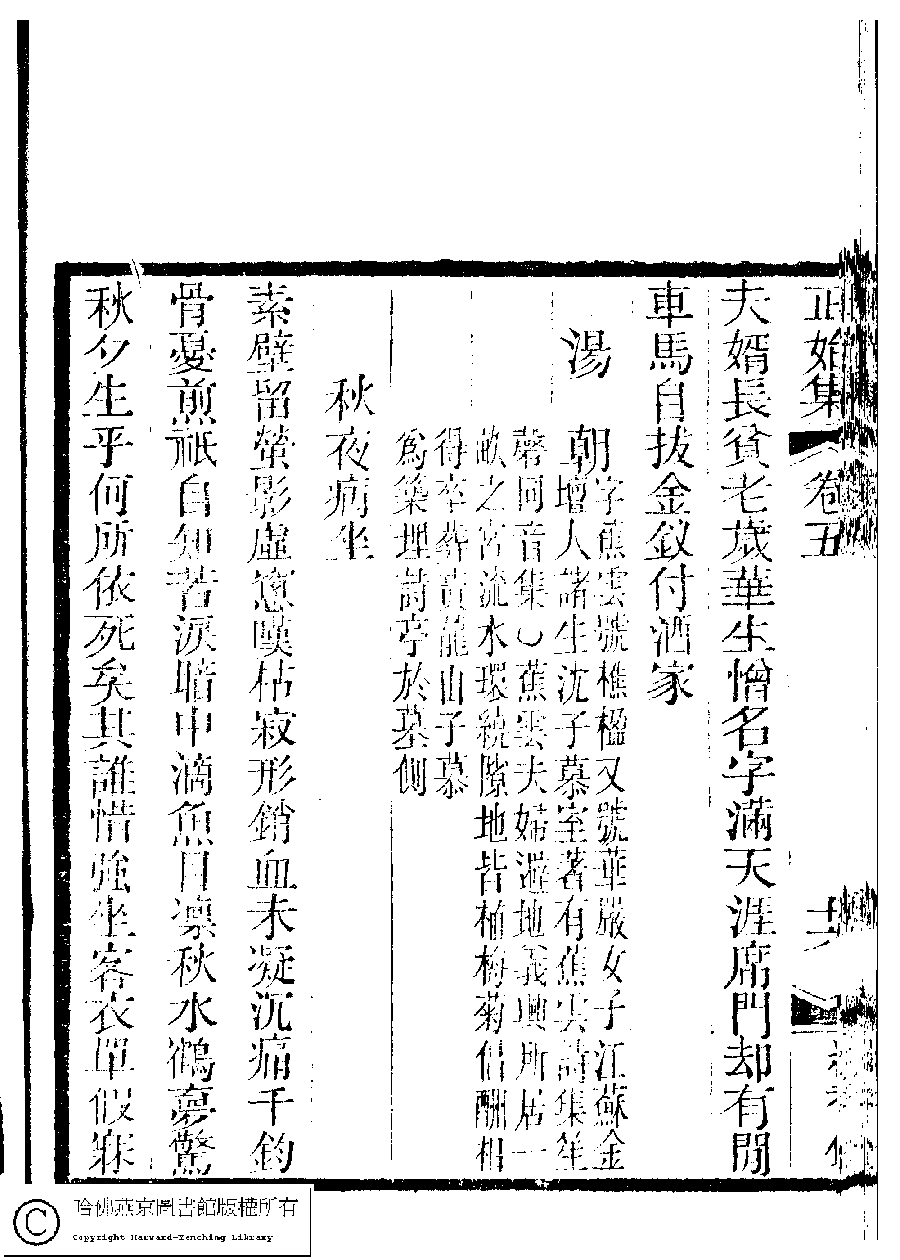 正始集 卷五
夫婿長貧老歲華生憎名字滿天涯席門却有閒
車馬自拔金釵付酒家
湯朝
字蕉雲號樵楹又號華嚴女子江蘇金
壇人諸生沈子慕室著有蕉雲詩集笙
磬同音集○蕉雲夫婦遊地義興所居一
畝之宮流水環繞隙地皆植梅菊倡酬相
得卒葬黃龍山子慕
爲築埋詩亭於墓側
秋夜病坐
素壁留螢影虛窗嘆枯寂形銷血未凝沉痛千鈞
骨憂煎祇自知苦淚暗中滴魚目凛秋水鶴夢驚
秋夕生乎何所依死矣其誰惜強坐客衣單假寐
哈佛燕京圖書館版權所有
Copyright Harvard-Yenching Library